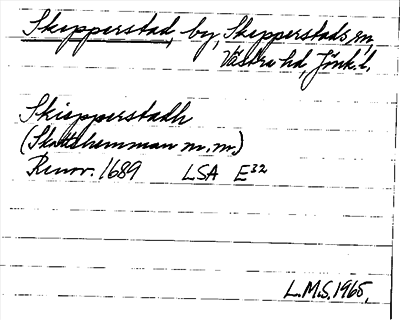 Skepperstad, by, Skepperstads sn,
Västra hd, Jönk. l.
Skiepperstadh
(Skattehemman m.m.)
Renov. 1689 LSA E32
L.M.S. 1965.